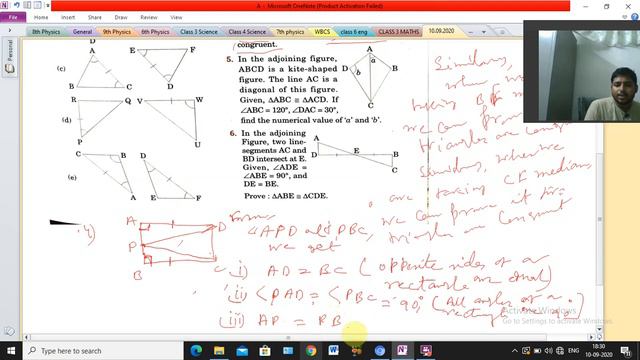 A - Microsoft OneNote (Product Activation Failed)
8th Physics General 9th Physics 6th Physics Class 3 Science Class 4 Science 7th physics WBCS class 6 eng CLASS 3 MATHS 10.09.2020
congruent.
(c) A B C D E F
(d) R Q P V W U
(e) C B A D E F
5. In the adjoining figure,
ABCD is a kite-shaped
figure. The line AC is a
diagonal of this figure.
Given, ∆ABC ≅ ∆ACD. If
∠ABC = 120°, ∠DAC = 30°,
find the numerical value of 'a' and 'b'.
A a D b B C
6. In the adjoining
Figure, two line-
segments AC and
BD intersect at E.
Given, ∠ADE =
∠ABE = 90°, and
DE = BE.
Prove : ∆ABE ≅ ∆CDE.
A D E B C
Similarly,
when we
taking
we can prove
triangles are congruent
Similarly, when we
are taking CF medians,
we can prove it
triangles are congruent
4)
A D P B C
From,
APD and PBC,
we get
i) AD = BC (opposite sides of a
rectangle are equal)
ii) ∠PAD = ∠PBC = 90° (All angles of a
rectangle are 90°)
iii) AP = PB
Activate Windows
Go to Settings to activate Windows.
Type here to search
ENG
18:30
10-09-2020